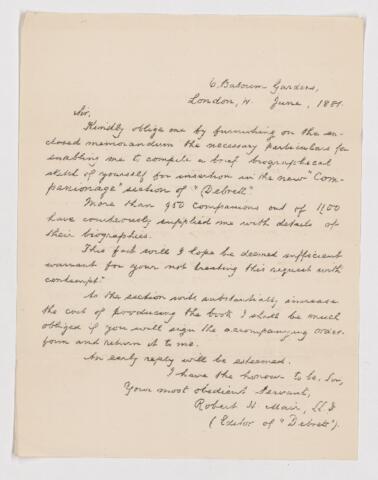 6. Batoum Gardens,
London, W. June, 1881.
Sir,
Kindly oblige me by furnishing on the en-
closed memorandum the necessary particulars for
enabling me to compile a brief biographical
sketch of yourself for insertion in the new "Com-
panionage" section of "Debrett"
More than 950 Companions out of 1150
have courteously supplied me with details of
their biographies.
This fact will I hope be deemed sufficient
warrant for your not treating this request with
contempt."
As the section will substantially increase
the cost of producing the book I shall be much
obliged if you will sign the accompanying order-
form and return it to me.
An early reply will be esteemed.
I have the honour to be, Sir,
Your most obedient Servant,
Robert H. Mair, LL.D
(Editor of "Debrett").